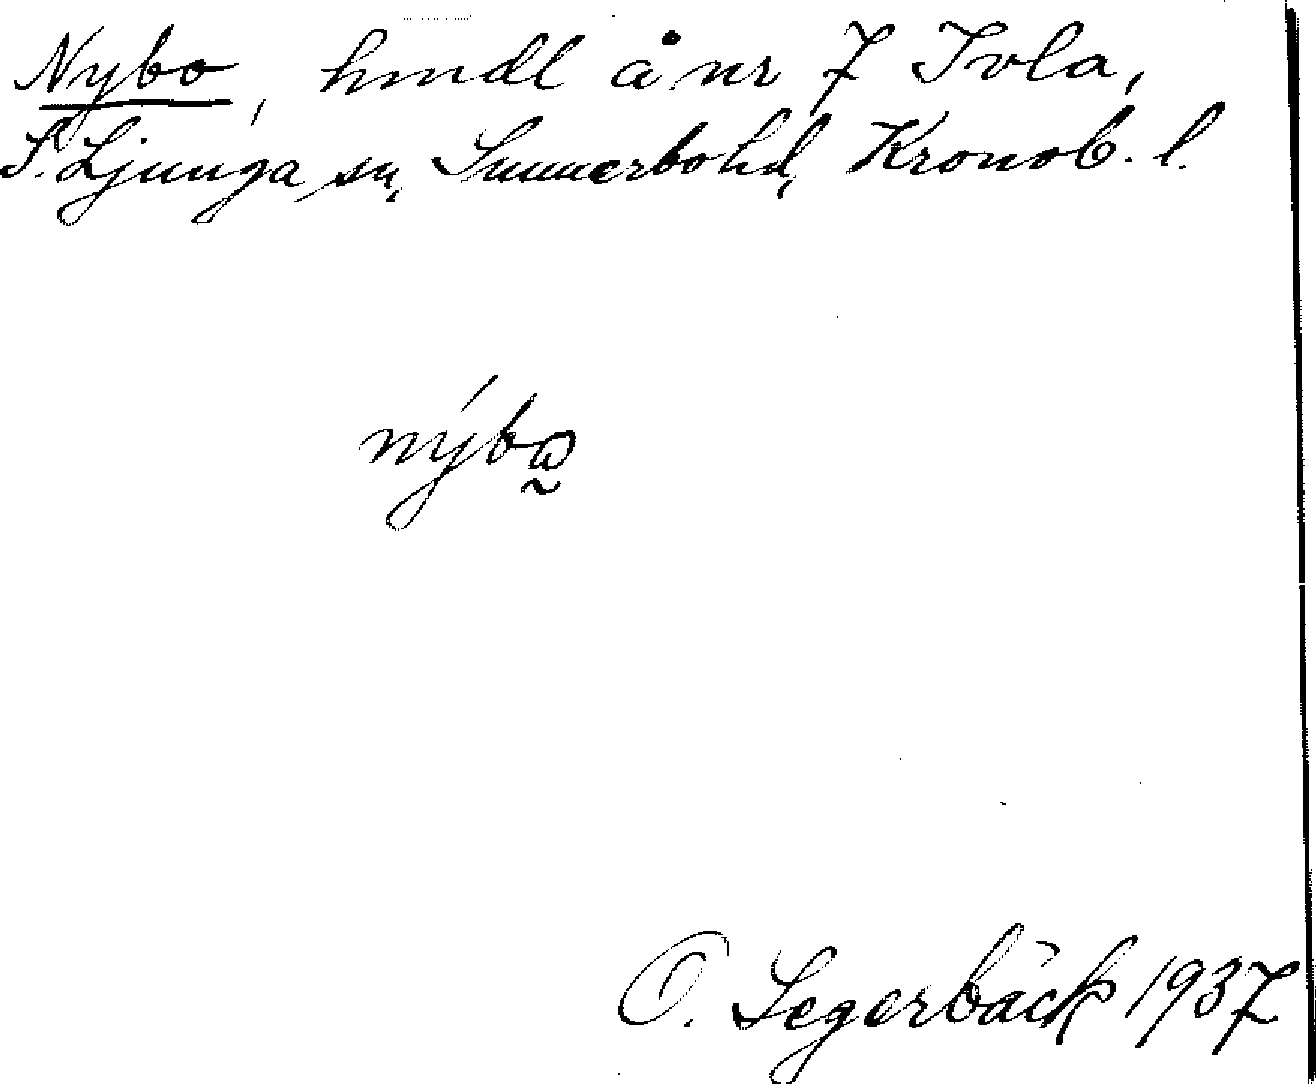 Nybo, hmdl å nr 7 Ivla,
S. Ljunga sn, Sunnerbo hd, Kronob. l.
nýbω̰
O. Segerbäck 1937